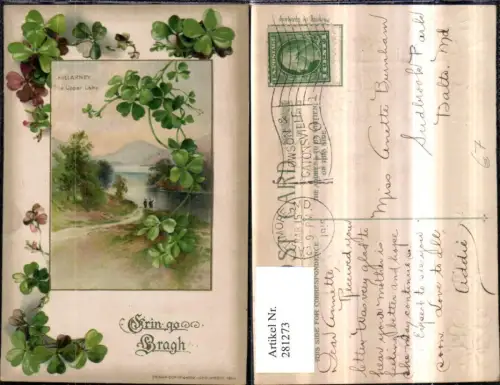 KILLARNEY
Upper Lake
Erin go
Bragh
Artikel Nr.
281273
CARD
Miss Annette Burnham
Sudbrook Park
Balto. Md
67
Dear Annette
Received your
letter was very glad to
hear your mother is
feeling better and hope
she may continue so
Expect to see you
soon love to all
Addie